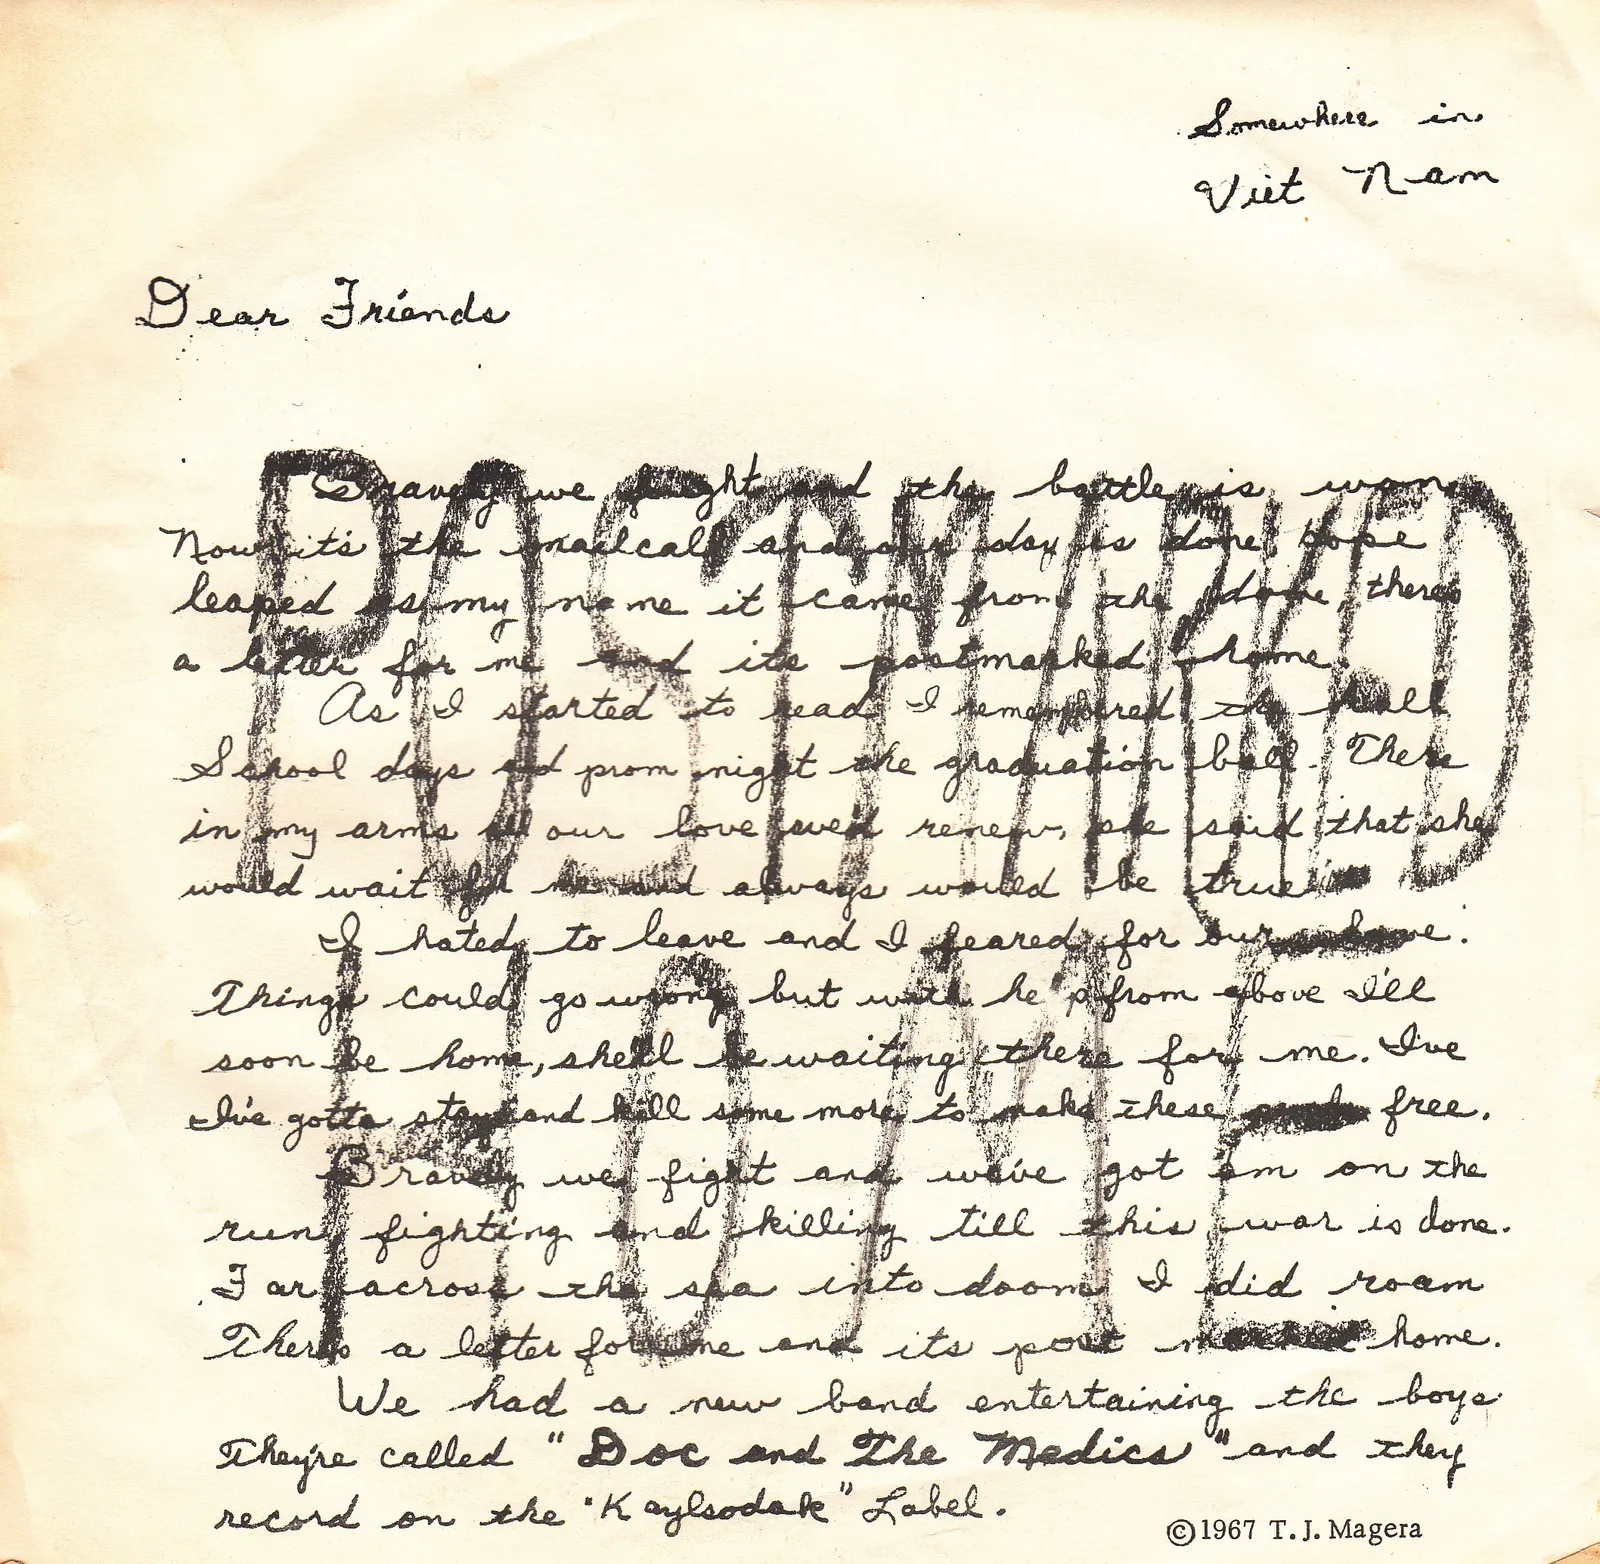 Somewhere in
Viet Nam
Dear Friends
POSTMARKED
HOME
Bravely we fought and the battle is won
Now it's the mailcall and our day is done. Hope
leaped as my name it came from the dome, theres
a letter for me and its postmarked home.
As I started to read I remembered the hall
School days and prom night the graduation ball. There
in my arms our love renew, she said that she
would wait for me and always would be true
I hated to leave and I feared for our love.
Things could go wrong but with help from above I'll
soon be home, she'll be waiting there for me. I've
I've gotta stay and kill some more to make these people free.
Bravely we fight and we've got em on the
run, fighting and killing till this war is done.
Far across the sea into doom I did roam
There's a letter for me and its post marked home.
We had a new band entertaining the boys
They're called "Doc and The Medics" and they
record on the "Kaylsodak" Label.
©1967 T. J. Magera